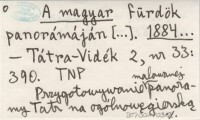 A magyar fürdök
panorámáján [...]. 1884...
– Tátra-Vidék 2, nr 33:
390. TNP malowanej
Przygotowywanie panora-
my Tatr na ogólnowęgierską